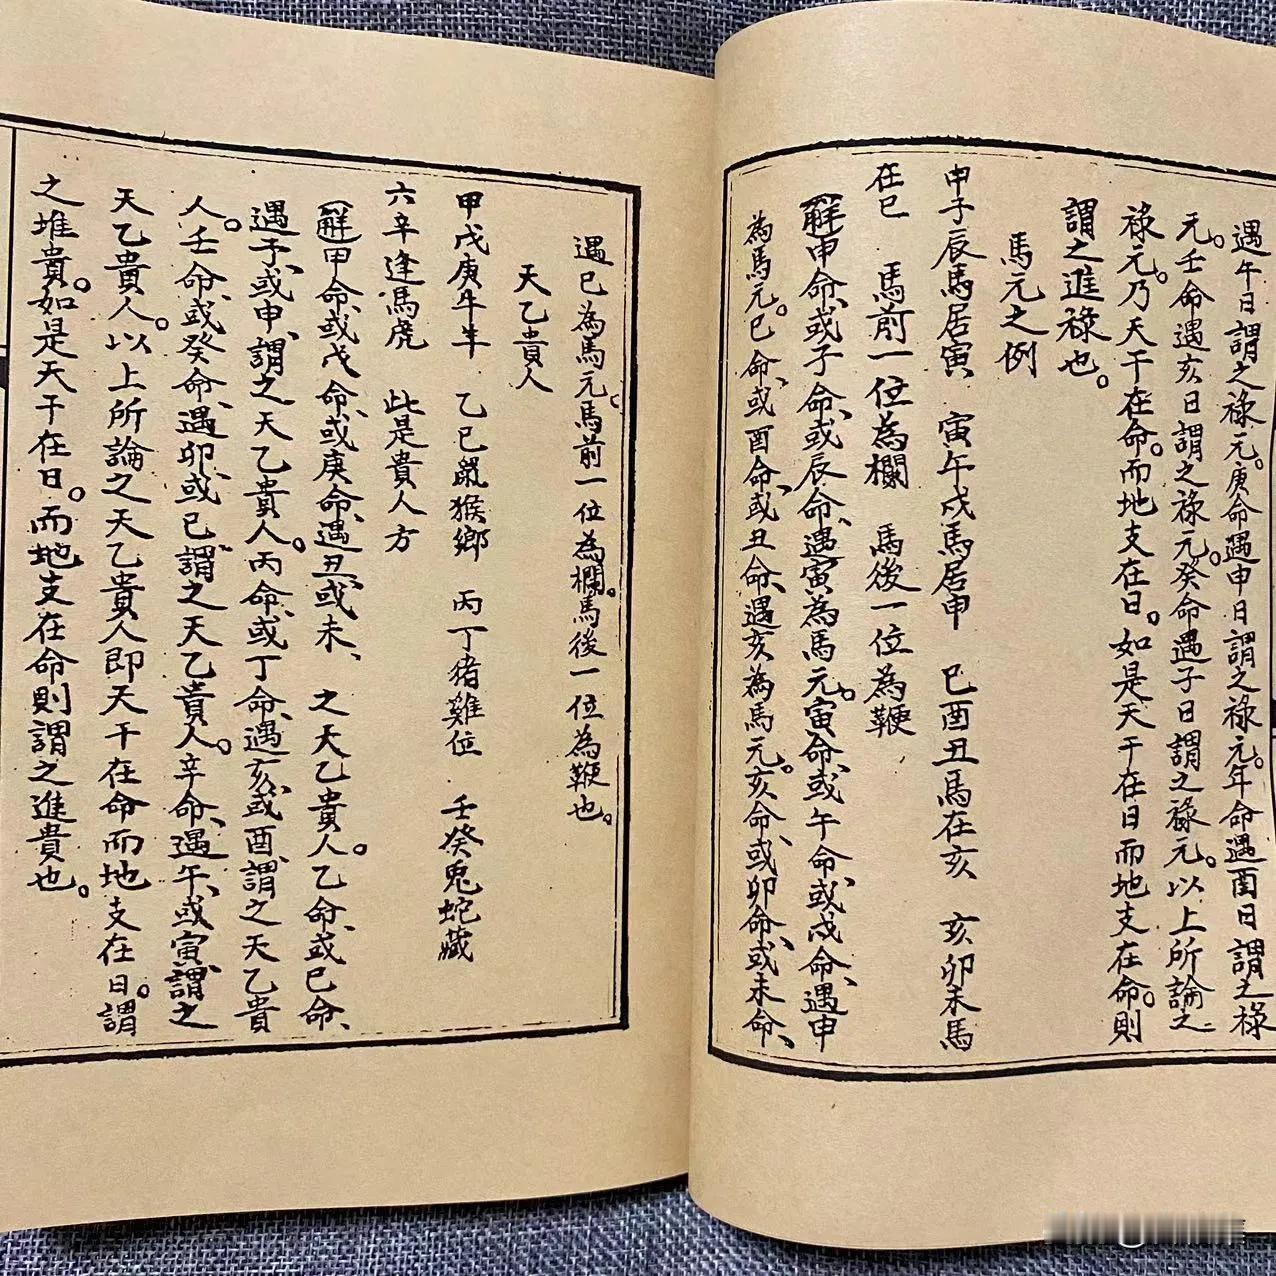 遇午日謂之祿元。庚命遇申日謂之祿元。年命遇酉日謂之祿
元。壬命遇亥日謂之祿元。癸命遇子日謂之祿元。以上所論之
祿元。乃天干在命。而地支在日。如是天干在日而地支在命。則
謂之進祿也。
馬元之例
申子辰馬居寅 寅午戌馬居申 巳酉丑馬在亥 亥卯未馬
在巳 馬前一位為欄 馬後一位為鞭
解申命、或子命、或辰命、遇寅為馬元。寅命、或午命、或戌命、遇申
為馬元。巳命、或酉命、或丑命、遇亥為馬元。亥命、或卯命、或未命、
遇巳為馬元。馬前一位為欄。馬後一位為鞭也。
天乙貴人
甲戊庚牛羊 乙己鼠猴鄉 丙丁猪雞位 壬癸兎蛇藏
六辛逢馬虎 此是貴人方
解甲命、或戊命、或庚命、遇丑、或未、 之天乙貴人。乙命、或己命、
遇子、或申、謂之天乙貴人。丙命、或丁命、遇亥、或酉、謂之天乙貴
人。壬命、或癸命、遇卯、或巳、謂之天乙貴人。辛命、遇午、或寅、謂之
天乙貴人。以上所論之天乙貴人即天干在命而地支在日。謂
之堆貴。如是天干在日。而地支在命則謂之進貴也。